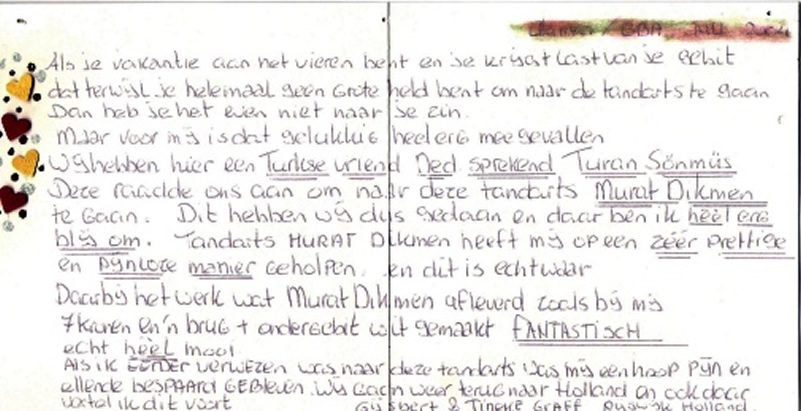 GBA, JULI
Als je vakantie aan het vieren bent en je krijgt last van je gebit
dat terwijl je helemaal geen grote held bent om naar de tandarts te gaan
Dan heb je het even niet naar je zin.
Maar voor mij is dat gelukkig heel erg meegevallen
Wij hebben hier een Turkse vriend Ned sprekend Turan Sönmüs
Deze raadde ons aan om naar deze tandarts Murat Dikmen
te gaan. Dit hebben wij dus gedaan en daar ben ik heel erg
blij om. Tandarts MURAT Dikmen heeft mij op een zéér prettige
en pijnloze manier geholpen, en dit is echt waar
Daarbij het werk wat Murat Dikmen afleverd zoals bij mij
7 kronen en 'n brug + ondergebit uit gemaakt FANTASTISCH
echt heel mooi
Als ik EERDER verwezen was naar deze tandarts was mij een hoop PIJN en
ellende BESPAARD GEBLEVEN. Wij gaan weer terug naar Holland en ook daar
vertel ik dit voort
Gijsbert & Tineke GRAFF Rijswijk Holland.